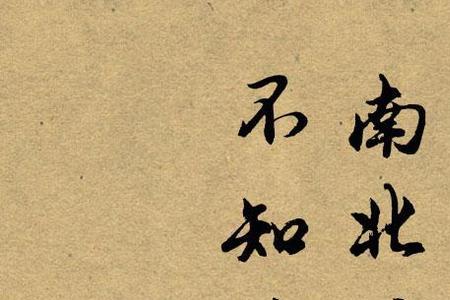 南北
不知